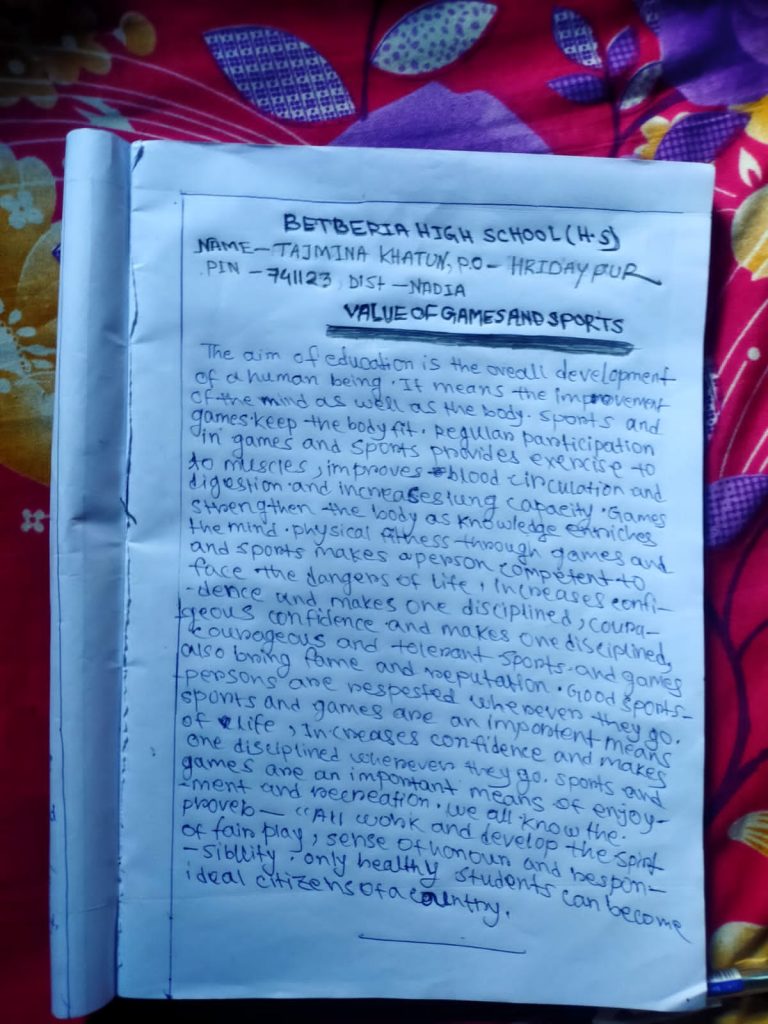 BETBERIA HIGH SCHOOL (H.S)
NAME - TAJMINA KHATUN, P.O - HRIDAYPUR
PIN - 741123, DIST - NADIA
VALUE OF GAMES AND SPORTS
The aim of education is the overall development
of a human being. It means the improvement
of the mind as well as the body. Sports and
games keep the body fit. Regular participation
in games and sports provides exercise to
to muscles, improves blood circulation and
digestion and increases lung capacity. Games
strengthen the body as knowledge enriches
the mind. physical fitness through games and
and sports makes a person competent to
face the dangers of life, increases confi-
-dence and makes one disciplined, coura-
geous confidence and makes one disciplined,
courageous and tolerant sports and games
also bring fame and reputation. Good sports-
persons are respested wherever they go.
sports and games are an important means
of life, Increases confidence and makes
one disciplined wherever they go. sports and
games are an important means of enjoy-
-ment and recreation. we all know the.
proverb - "All work and develop the spirit
of fair play, sense of honour and respon-
-sibility. only healthy students can become
ideal citizens of a country.